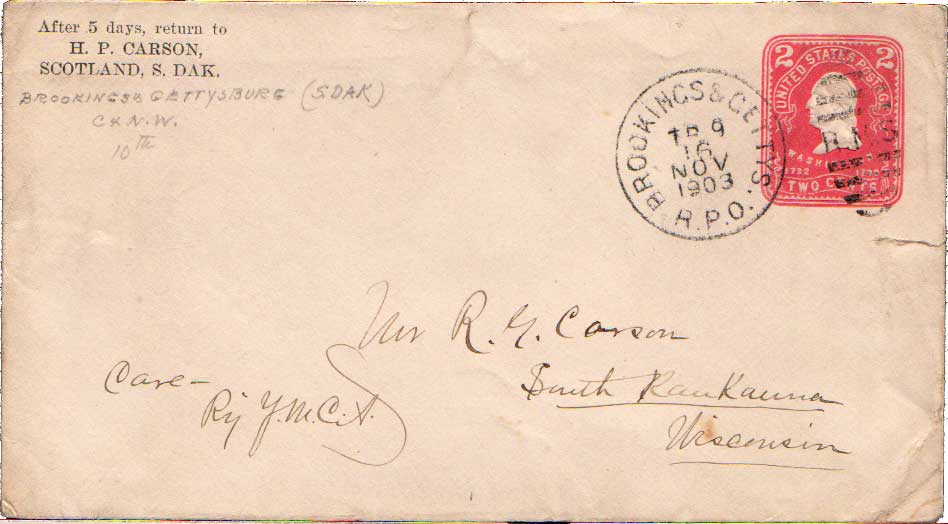 After 5 days, return to
H. P. CARSON,
SCOTLAND, S. DAK.
BROOKINGS & GETTYSBURG (S.DAK)
C & N.W.
10th
BROOKINGS & GETTYS.
TR 9
16
NOV
1903
R.P.O.
2 2
UNITED STATES POSTAGE
R.M.S
WASHINGTON
1732 1799
TWO CENTS
Mr R. G. Carson
Care -
South Kaukauna
Ry Y.M.C.A.
Wisconsin